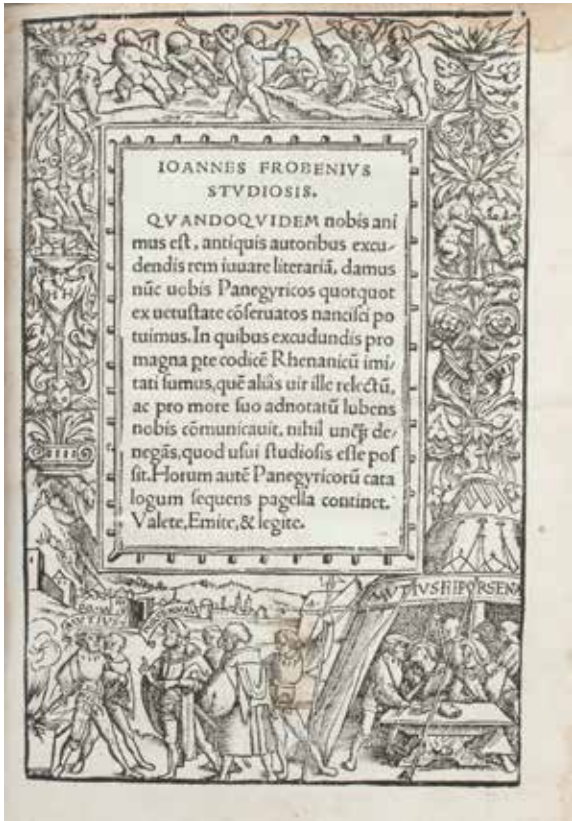 IOANNES FROBENIVS
STVDIOSIS.
QVANDOQVIDEM nobis ani
mus est, antiquis autoribus excu-
dendis rem iuuare literariā, damus
nūc uobis Panegyricos quotquot
ex uetustate cōseruatos nancisci po
tuimus. In quibus excudundis pro
magna pte codicē Rhenanicū imi-
tati sumus, quē aliâs uir ille relectū,
ac pro more suo adnotatū lubens
nobis cōmunicauit, nihil unq̃ de-
negās, quod usui studiosis esse pos
sit. Horum autē Panegyricorū cata
logum sequens pagella continet.
Valete, Emite, & legite.
HH
MVTIVS
MVTIVS PORSENA